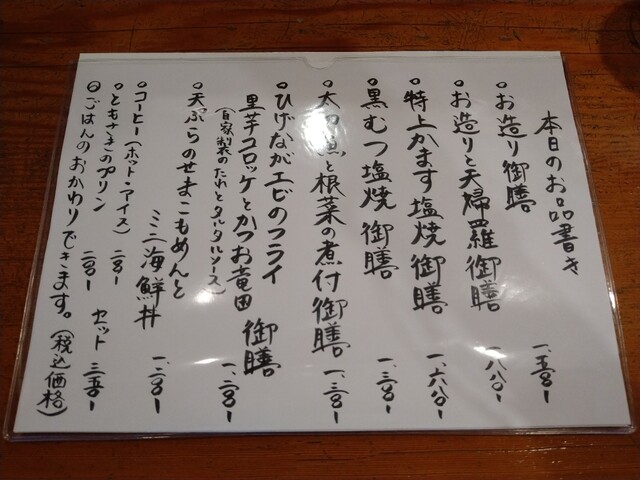 本日のお品書き
○お造り御膳 一、五〇〇ー
○お造りと天婦羅御膳 一、八〇〇ー
○特上かます塩焼御膳 一、六八〇ー
○黒むつ塩焼御膳 一、三〇〇ー
○太刀魚と根菜の煮付御膳 一、三〇〇ー
○ひげながエビのフライ
里芋コロッケとかつお竜田 御膳
(自家製のたれとタルタルソース) 一、二〇〇ー
○天ぷらのせまこもめんと
ミニ海鮮丼 一、二〇〇ー
○コーヒー(ホット・アイス) 二〇〇ー セット 三五〇ー
○ともさまのプリン 二〇〇ー
◎ごはんのおかわりできます。(税込価格)